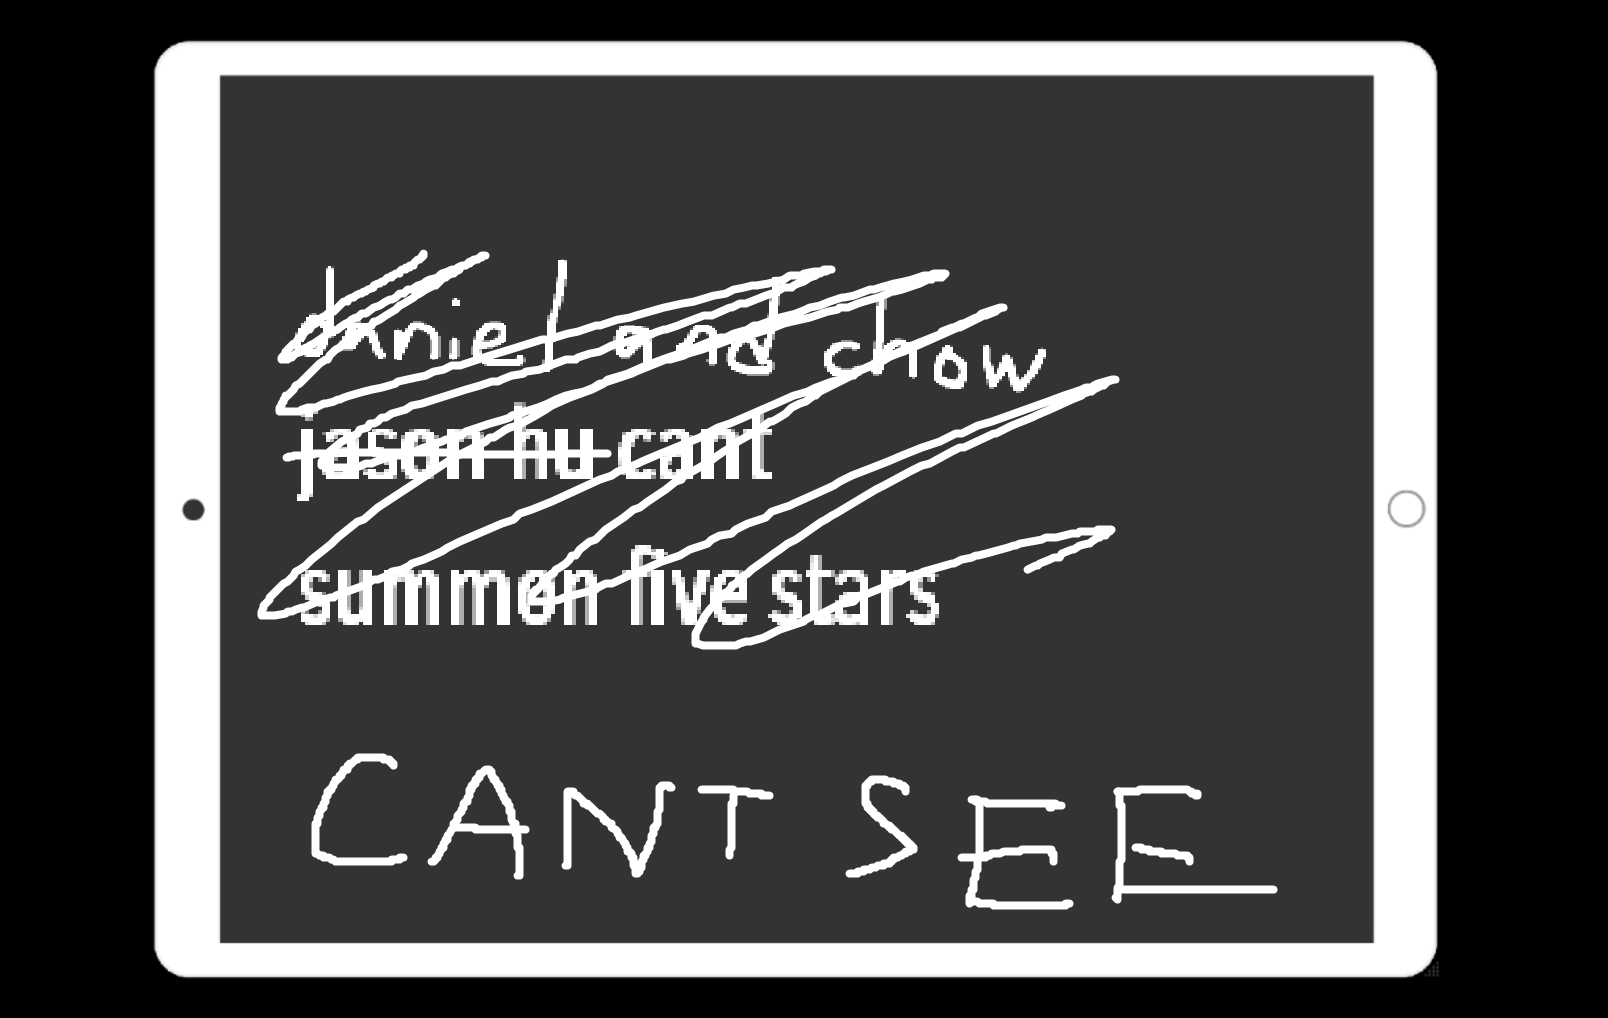 daniel and chow
jason hu cant
summon five stars
CANT SEE